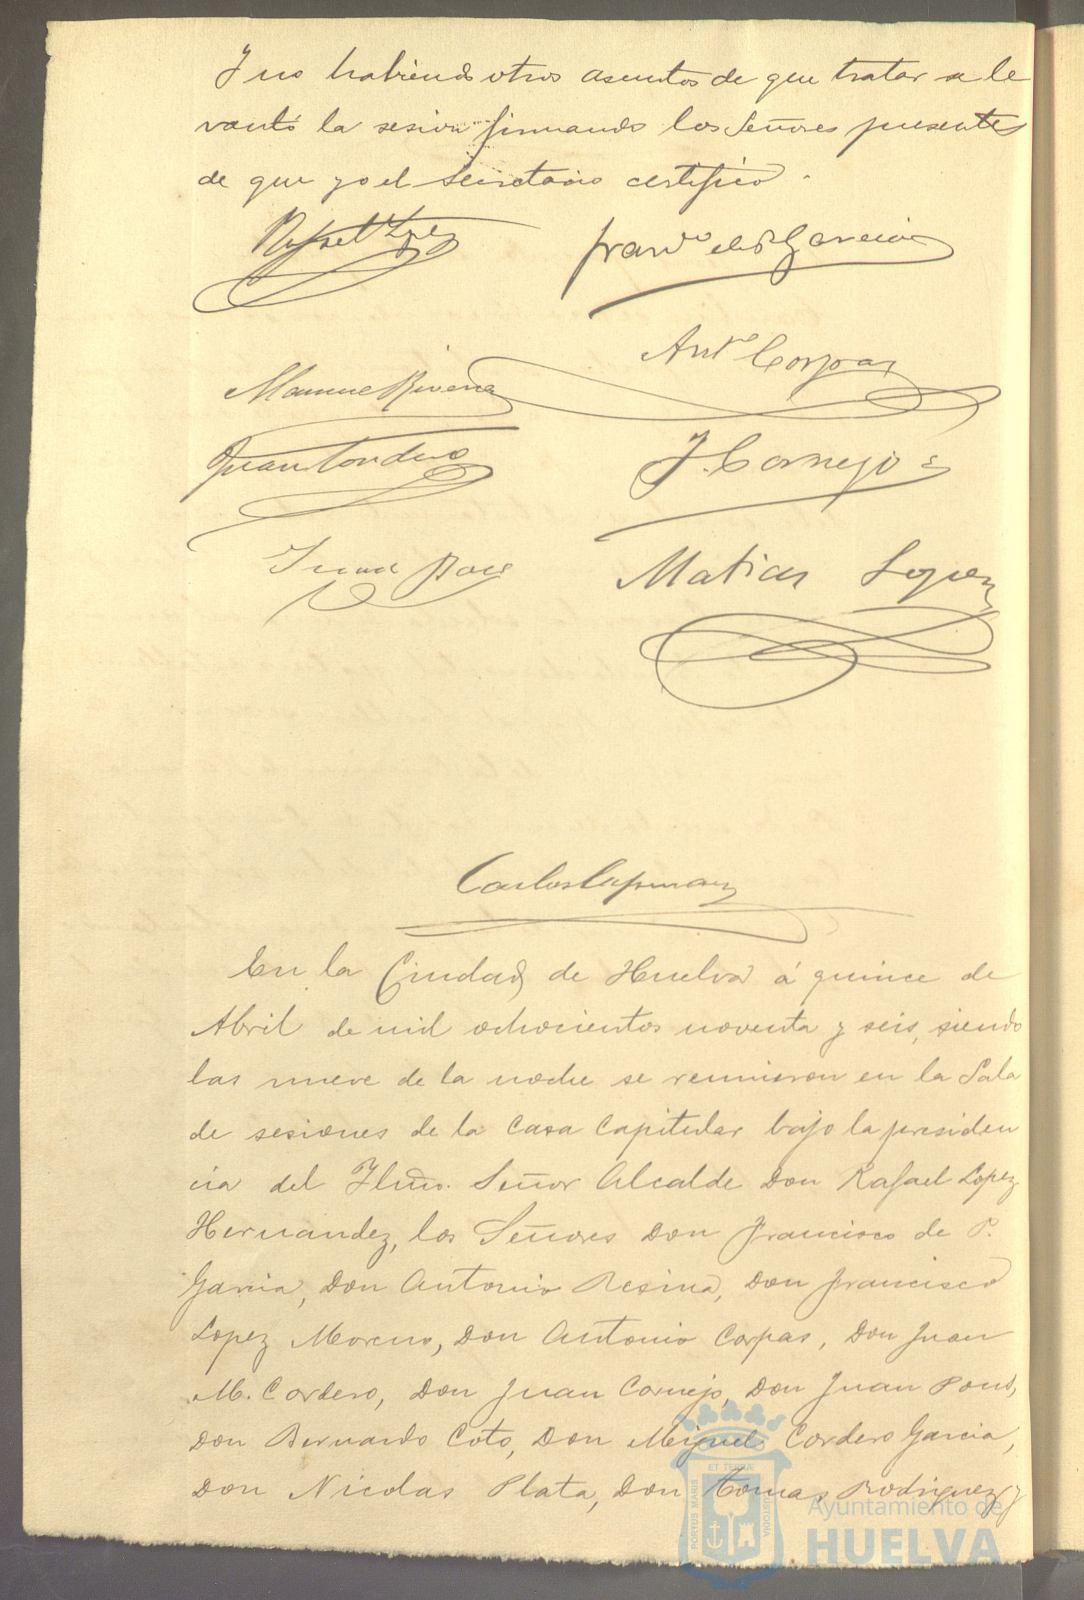 Y no habiendo otros asuntos de que tratar se le
vantó la sesion firmando los Señores presentes
de que yo el Secretario certifico.
Rafael Lpez
Franco de P Garcia
Anto Corpas
Manuel Rivera
Juan Cordero
J. Cornejo
Juan Pons
Matias Lopez
Carlos
En la Ciudad de Huelva á quince de
Abril de mil ochocientos noventa y seis, siendo
las nueve de la noche se reunieron en la Sala
de sesiones de la Casa Capitular bajo la presiden
cia del Iltmo. Señor Alcalde Don Rafael Lopez
Hernandez, los Señores Don Francisco de P.
Garcia, Don Antonio Resina, Don Francisco
Lopez Moreno, Don Antonio Corpas, Don Juan
M. Cordero, Don Juan Cornejo, Don Juan Pons,
Don Bernardo Coto, Don Miguel Cordero Garcia,
Don Nicolas Plata, Don Tomas Rodriguez y
PORTUS MARIS ET TERRAE CUSTODIA
Ayuntamiento de
HUELVA